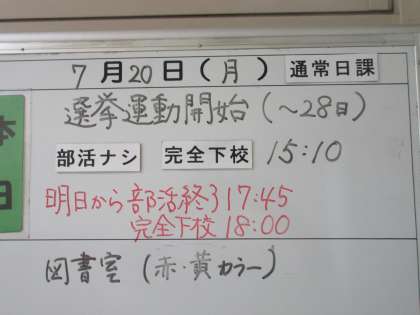 7月20日(月) 通常日課
選挙運動開始(～28日)
部活ナシ 完全下校 15:10
本日
明日から部活終了17:45
完全下校 18:00
図書室(赤・黄カラー)